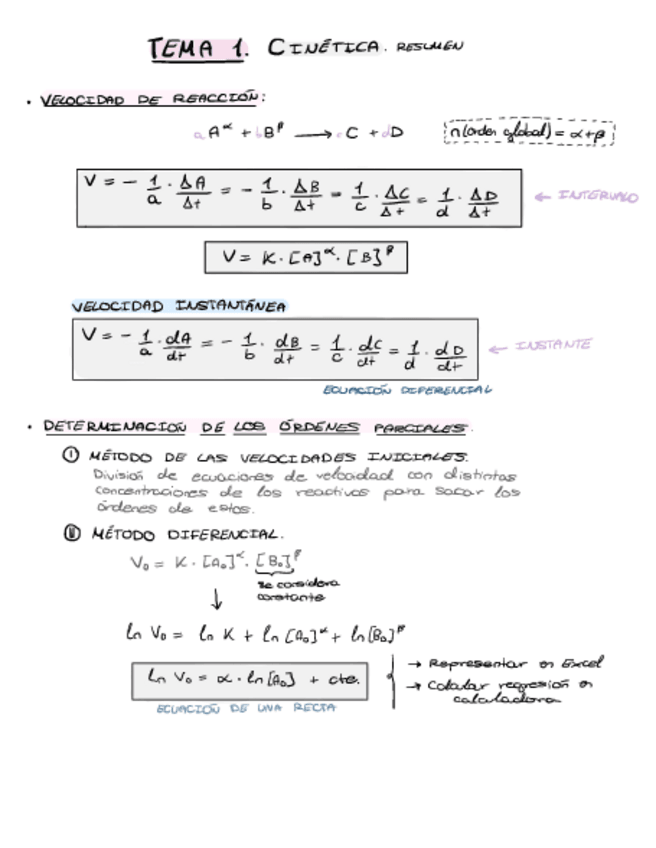 TEMA 1. CINÉTICA. RESUMEN
• VELOCIDAD DE REACCIÓN:
aA^α + bB^β ⟶ cC + dD
n(orden global) = α+β
V = - 1/a · ΔA/Δt = - 1/b · ΔB/Δt = 1/c · ΔC/Δt = 1/d · ΔD/Δt ← INTERVALO
V = K · [A]^α · [B]^β
VELOCIDAD INSTANTÁNEA
V = - 1/a · dA/dt = - 1/b · dB/dt = 1/c · dC/dt = 1/d · dD/dt ← INSTANTE
ECUACIÓN DIFERENCIAL
• DETERMINACION DE LOS ÓRDENES PARCIALES.
Ⓘ MÉTODO DE LAS VELOCIDADES INICIALES.
División de ecuaciones de velocidad con distintas
concentraciones de los reactivos para sacar los
órdenes de estos.
Ⓘ Ⓘ MÉTODO DIFERENCIAL.
V₀ = K · [A₀]^α · [B₀]^β
se considera
constante
↓
ln V₀ = ln K + ln [A₀]^α + ln [B₀]^β
ln V₀ = α · ln [A₀] + cte.
→ Representar en Excel
→ Calcular regresión en
calculadora
ECUACIÓN DE UNA RECTA